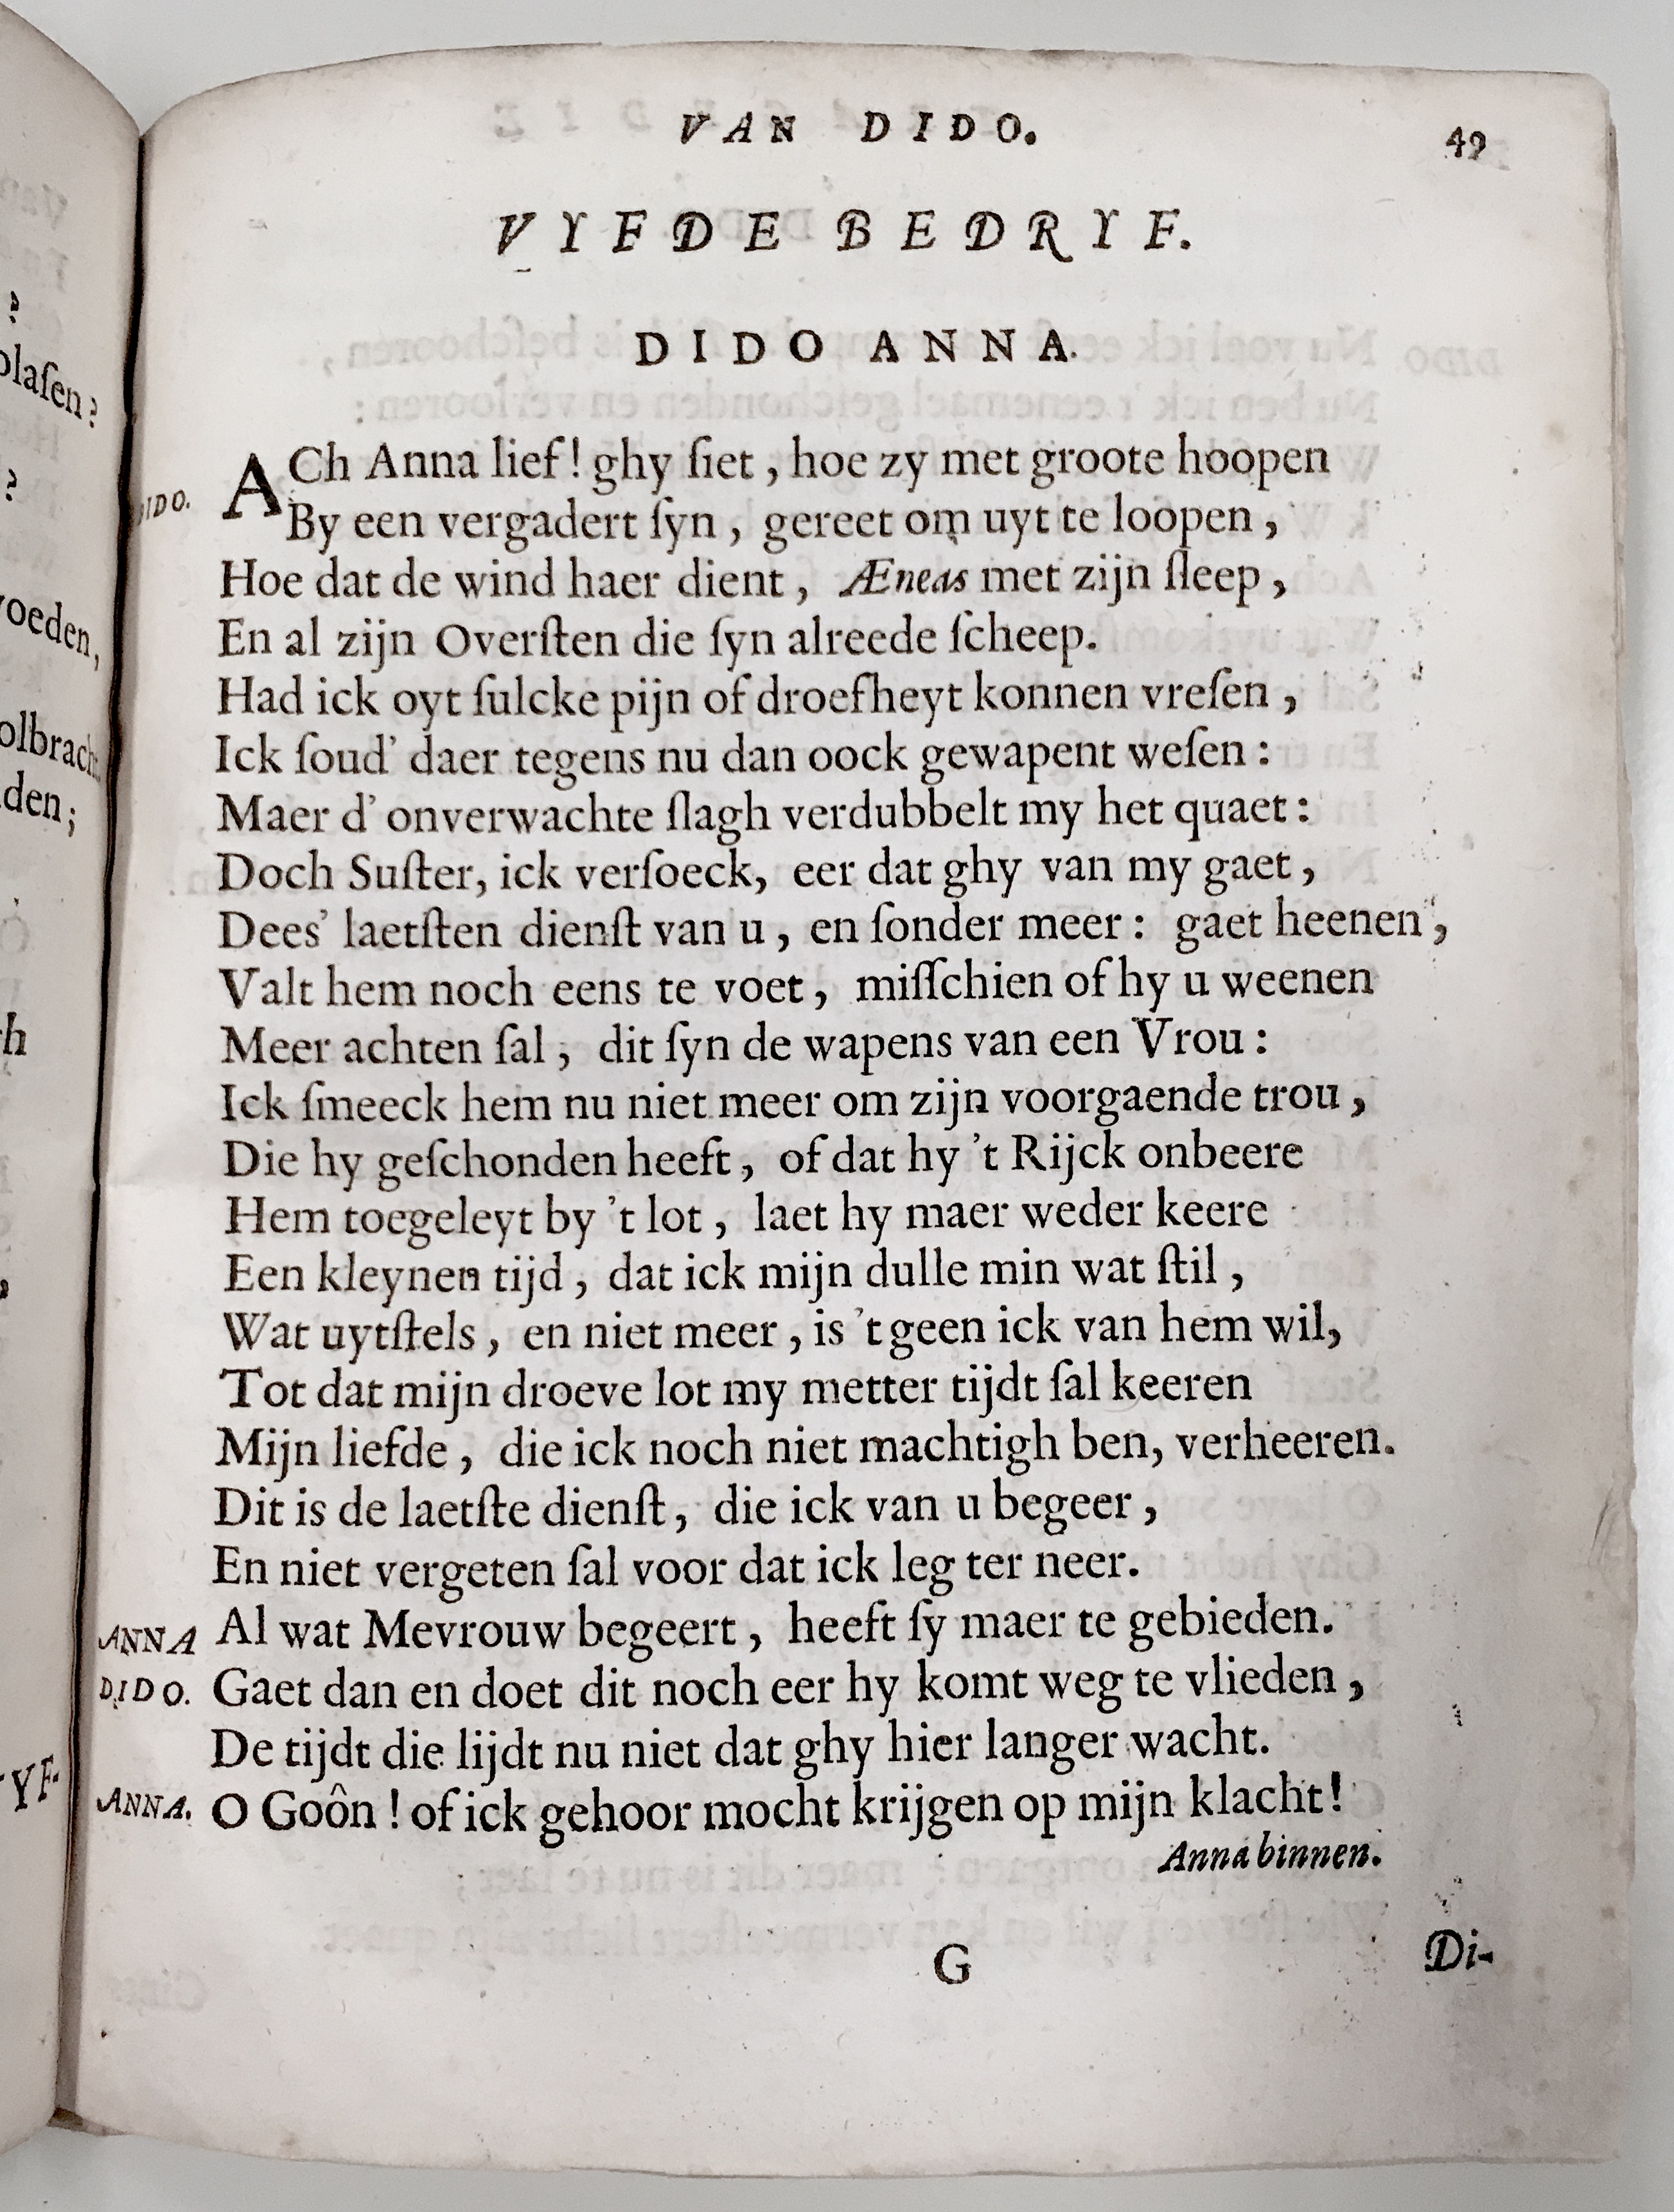 VAN DIDO. 49
VYFDE BEDRYF.
DIDO ANNA.
DIDO. ACh Anna lief! ghy ſiet, hoe zy met groote hoopen
By een vergadert ſyn, gereet om uyt te loopen,
Hoe dat de wind haer dient, Æneas met zijn ſleep,
En al zijn Overſten die ſyn alreede ſcheep.
Had ick oyt ſulcke pijn of droefheyt konnen vreſen,
Ick ſoud' daer tegens nu dan oock gewapent weſen:
Maer d' onverwachte ſlagh verdubbelt my het quaet:
Doch Suſter, ick verſoeck, eer dat ghy van my gaet,
Dees' laetſten dienſt van u, en ſonder meer: gaet heenen,
Valt hem noch eens te voet, miſſchien of hy u weenen
Meer achten ſal, dit ſyn de wapens van een Vrou:
Ick ſmeeck hem nu niet meer om zijn voorgaende trou,
Die hy geſchonden heeft, of dat hy 't Rijck onbeere
Hem toegeleyt by 't lot, laet hy maer weder keere
Een kleynen tijd, dat ick mijn dulle min wat ſtil,
Wat uytſtels, en niet meer, is 't geen ick van hem wil,
Tot dat mijn droeve lot my metter tijdt ſal keeren
Mijn liefde, die ick noch niet machtigh ben, verheeren.
Dit is de laetſte dienſt, die ick van u begeer,
En niet vergeten ſal voor dat ick leg ter neer.
ANNA Al wat Mevrouw begeert, heeft ſy maer te gebieden.
DIDO. Gaet dan en doet dit noch eer hy komt weg te vlieden,
De tijdt die lijdt nu niet dat ghy hier langer wacht.
ANNA. O Goôn! of ick gehoor mocht krijgen op mijn klacht!
Anna binnen.
G Di-